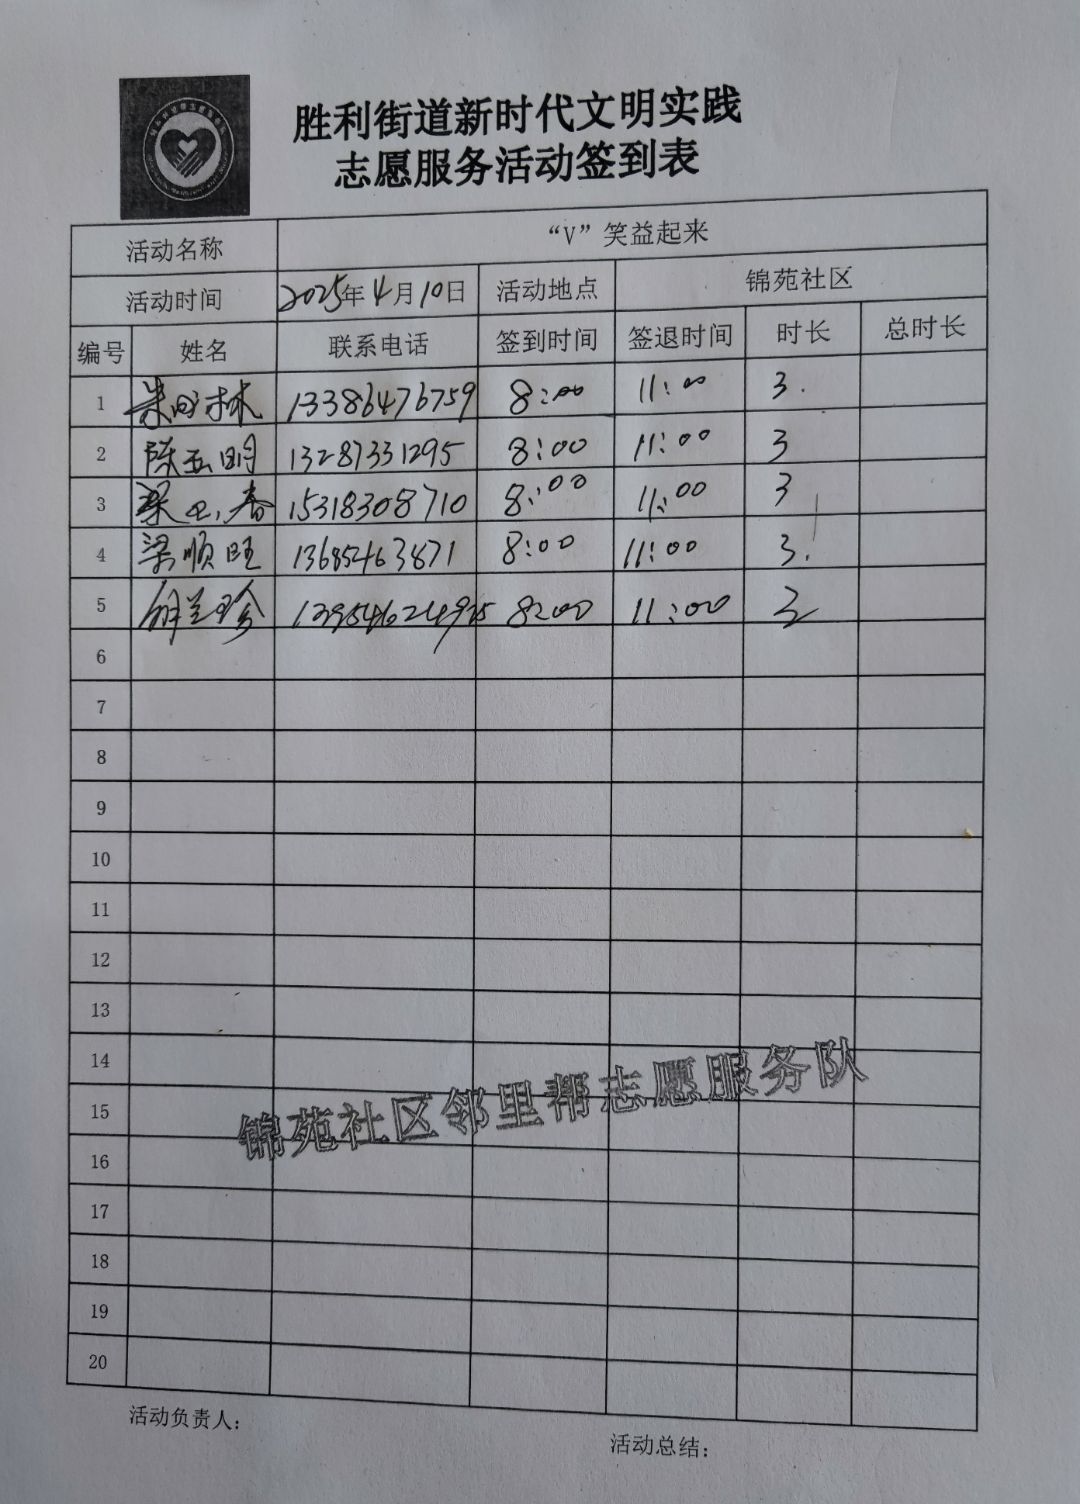 胜利街道新时代文明实践
志愿服务活动签到表
活动名称 “V”笑益起来
活动时间 2025年4月10日 活动地点 锦苑社区
编号 姓名 联系电话 签到时间 签退时间 时长 总时长
1 林 13386476759 8:00 11:00 3.
2 陈玉明 13287331295 8:00 11:00 3
3 梁 春 15318308710 8:00 11:00 3
4 梁顺旺 13685463871 8:00 11:00 3.
5 兰珍 8:00 11:00 3
6
7
8
9
10
11
12
13
14
15
锦苑社区邻里帮志愿服务队
16
17
18
19
20
活动负责人:
活动总结: